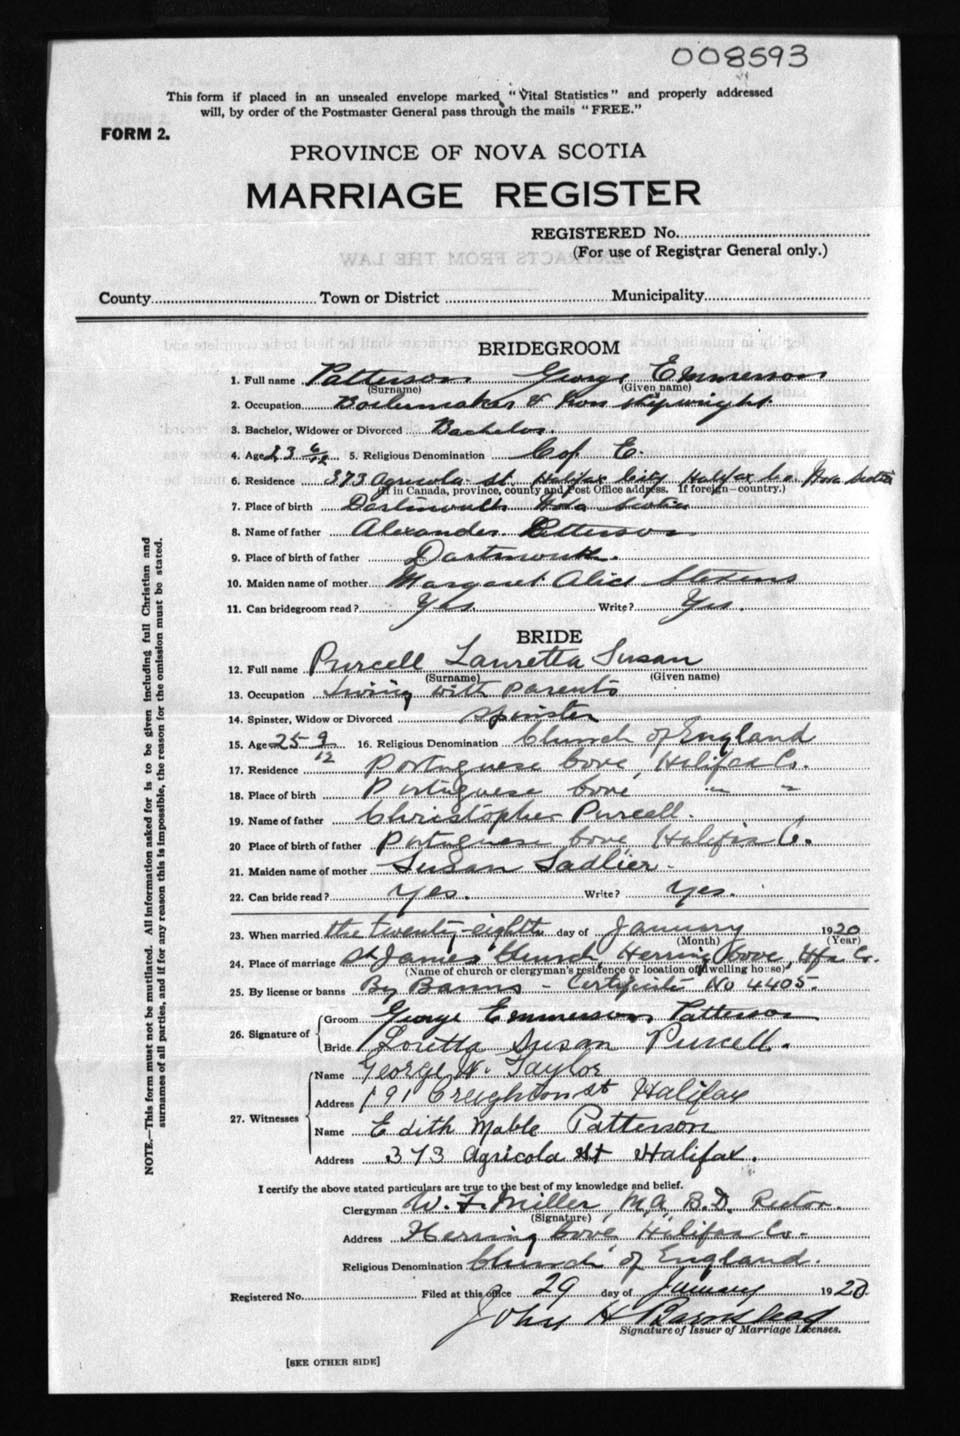 008593
This form if placed in an unsealed envelope marked "Vital Statistics" and properly addressed
will, by order of the Postmaster General pass through the mails "FREE."
FORM 2.
PROVINCE OF NOVA SCOTIA
MARRIAGE REGISTER
REGISTERED No.
(For use of Registrar General only.)
EXTRACTS FROM THE LAW
County Town or District Municipality
BRIDEGROOM
1. Full name Patterson George Emmerson
(Surname) (Given name)
2. Occupation Boilermaker & Iron shipwright
3. Bachelor, Widower or Divorced Bachelor.
4. Age 23 6/12 5. Religious Denomination C of E.
6. Residence 373 Agricola St. Halifax City Halifax Co. Nova Scotia
(If in Canada, province, county and Post Office address. If foreign—country.)
7. Place of birth Dartmouth Nova Scotia
8. Name of father Alexander Patterson
9. Place of birth of father Dartmouth.
10. Maiden name of mother Margaret Alice Stevens
11. Can bridegroom read? Yes Write? Yes.
BRIDE
12. Full name Purcell Lauretta Susan
(Surname) (Given name)
13. Occupation Living with parents
14. Spinster, Widow or Divorced spinster
15. Age 25 9/12 16. Religious Denomination Church of England
17. Residence Portuguese Cove, Halifax Co.
18. Place of birth Portuguese Cove " "
19. Name of father Christopher Purcell.
20 Place of birth of father Portuguese Cove, Halifax Co.
21. Maiden name of mother Susan Sadlier.
22. Can bride read? Yes. Write? Yes.
23. When married the twenty-eighth day of January 1920
(Month) (Year)
24. Place of marriage St James Church, Herring Cove, Hfx Co.
(Name of church or clergyman's residence or location of dwelling house)
25. By license or banns By Banns - Certificate No 4405.
26. Signature of { Groom George Emmerson Patterson
Bride Loretta Susan Purcell.
27. Witnesses { Name George W. Taylor
Address 191 Creighton St Halifax
Name Edith Mable Patterson
Address 373 Agricola St Halifax.
I certify the above stated particulars are true to the best of my knowledge and belief.
Clergyman W. F. Miller, M.A. B.D. Rector.
(Signature)
Address Herring Cove Halifax Co.
Religious Denomination Church of England.
Registered No. Filed at this office 29 day of January 1920
John H
Signature of Issuer of Marriage Licenses.
[SEE OTHER SIDE]
NOTE.—This form must not be mutilated. All information asked for is to be given including full Christian and
surnames of all parties, and if for any reason this is impossible, the reason for the omission must be stated.